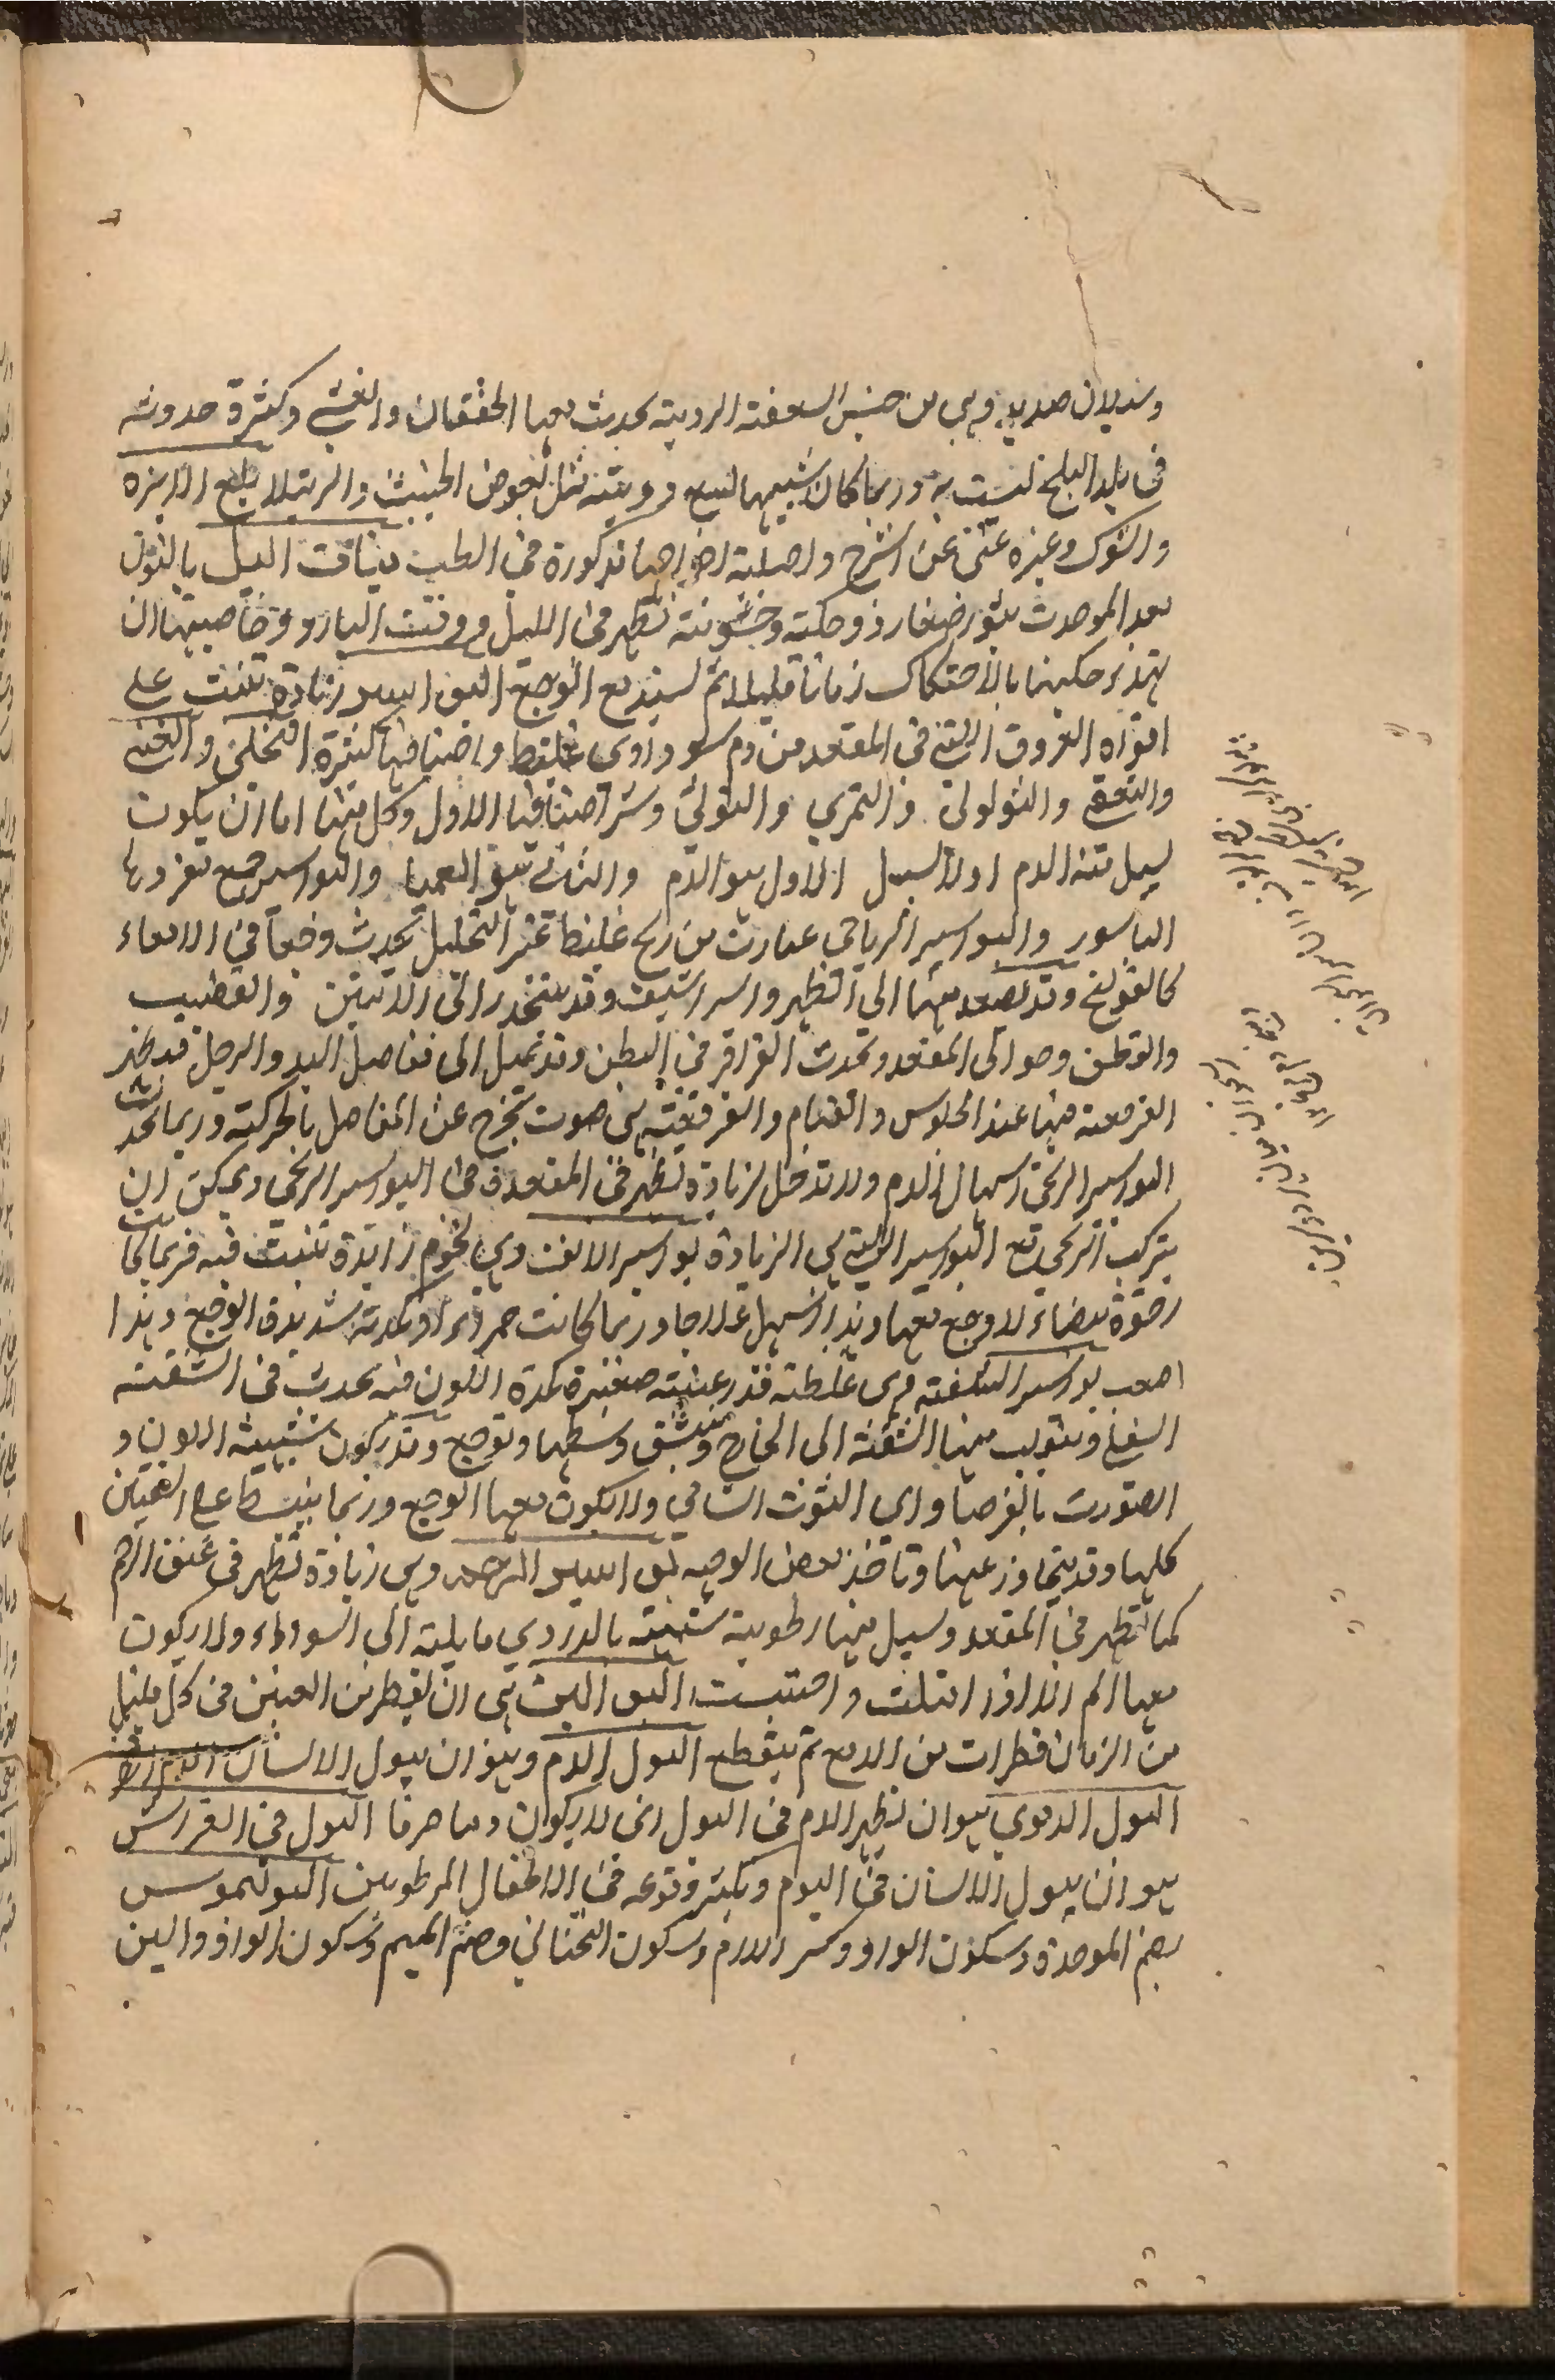 وسيلان صديد وهي من جنس السعفة الردية يحدث معها الخفقان والغشي وكثرة حدوثه
في بلد البلخ لنسبت به وربما كان شبيهها لسع دويبة مثل بعوض الخبيث والرتيلا بلع الابرة
والشوك وغيره غني عن الشرح واصلية اخراجها مذكورة في الطب بنات الليل بالنون
بعد الموحدة بثور صغار ذو حكة وخشونة تظهر في الليل ووقت البارد وخاصيتها ان
حكيتها بالاحتكاك زمانا قليلا ثم يستدع الوجع البواسير زيادة تنبت على
افواه العروق التي في المقعد من دم سوداوي غليظ واصنافها كثيرة النخلي والعنبي
والنفخي والثولولي والتمري والتوثي وشر اصنافها الاول وكل منها اما ان يكون
يسيل منه الدم او لا يسيل الاول هو الدم والثاني هو العميا والبواسير جمع مفردها
الباسور والبواسير الرياحي عبارت من ريح غليظ عسر التحليل يحدث وجعا في الامعاء
كالقولنج وقد يصعد منها الى الظهر والشراسيف وقد ينحدر الى الانثيين والقضيب
والقطن وحوالي المقعد وتحدث القراقر في البطن وقد تميل الى مفاصل اليد والرجل فيظهر
الفرقعة منها عند الجلوس والقيام والفرقعة هي صوت يخرج عن المفاصل بالحركة وربما يحدث
البواسير الريحي اسهال الدم ولا تدخل لزيادة تظهر في المقعدة في البواسير الريحي ويمكن ان
يتركب الريحي مع البواسير التي هي الزيادة بواسير الانف وهي لحوم زايدة تنبت فيه فربما كانت
رخوة بيضاء لا وجع معها وهذا اسهل علاجا وربما كانت حمراء او كمدة شديدة الوجع وهذا
اصعب بواسير الشفة وهي غلظة قدر عنبة صغيرة كمدة اللون فيه يحدث في الشفة
السفلى وينقلب منها الشفة الى الخارج وينشق وسطها وتوجع وقد يكون شبيهة اللون و
الصورت بالفرصاد اي التوث الشامي ولا يكون معها الوجع وربما ينبسط على العين
كلها وقد يتجاوز عنها وتاخذ بعض الوجه بواسير الرحم وهي زيادة تظهر في عنق الرحم
كما تظهر في المقعد ويسيل منها رطوبة شبيهة بالدردي مايلة الى السوداء ولا يكون
معها الم الا اذا امتلئت واحتبست هي ان يقطر من العين في كل قليل
من الزمان قطرات من الدمع ثم ينقطع البول الدم وهو ان يبول الانسان
البول الدموي هو ان يظهر الدم في البول اني لا يكون دما صرفا البول في الفراش
هو ان يبول الانسان في النوم ويكثر وقوعه في الاطفال المرطوبين البوليموس
بضم الموحدة وسكون الواو وكسر اللام وسكون التحتاني وضم الميم وسكون الواو والسين